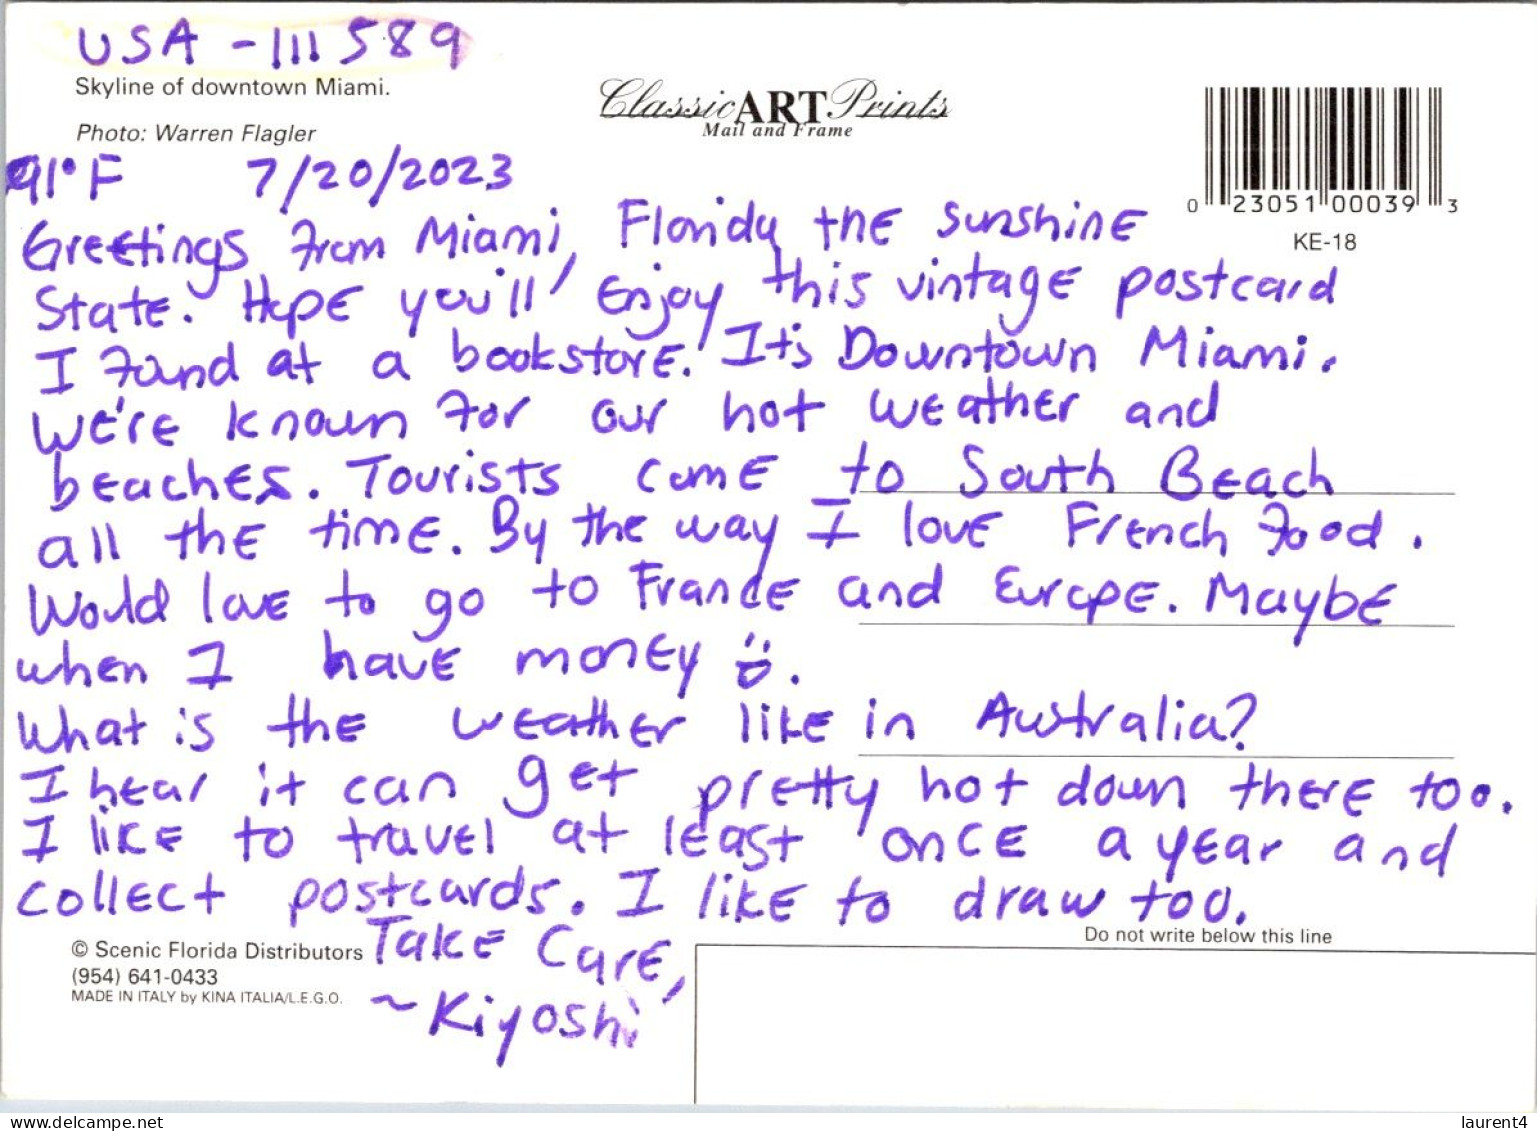 USA - 111589
Skyline of downtown Miami.
Photo: Warren Flagler
Classic ART Prints
Mail and Frame
0 23051 00039 3
KE-18
91°F 7/20/2023
Greetings from Miami, Florida the sunshine
State. Hope you'll enjoy this vintage postcard
I found at a bookstore. It's Downtown Miami.
We're known for our hot weather and
beaches. Tourists come to South Beach
all the time. By the way I love French Food.
Would love to go to France and Europe. Maybe
when I have money ☺.
What is the weather like in Australia?
I hear it can get pretty hot down there too.
I like to travel at least once a year and
collect postcards. I like to draw too.
Take Care,
~Kiyoshi
© Scenic Florida Distributors
(954) 641-0433
MADE IN ITALY by KINA ITALIA/L.E.G.O.
Do not write below this line
www.delcampe.net
laurent4